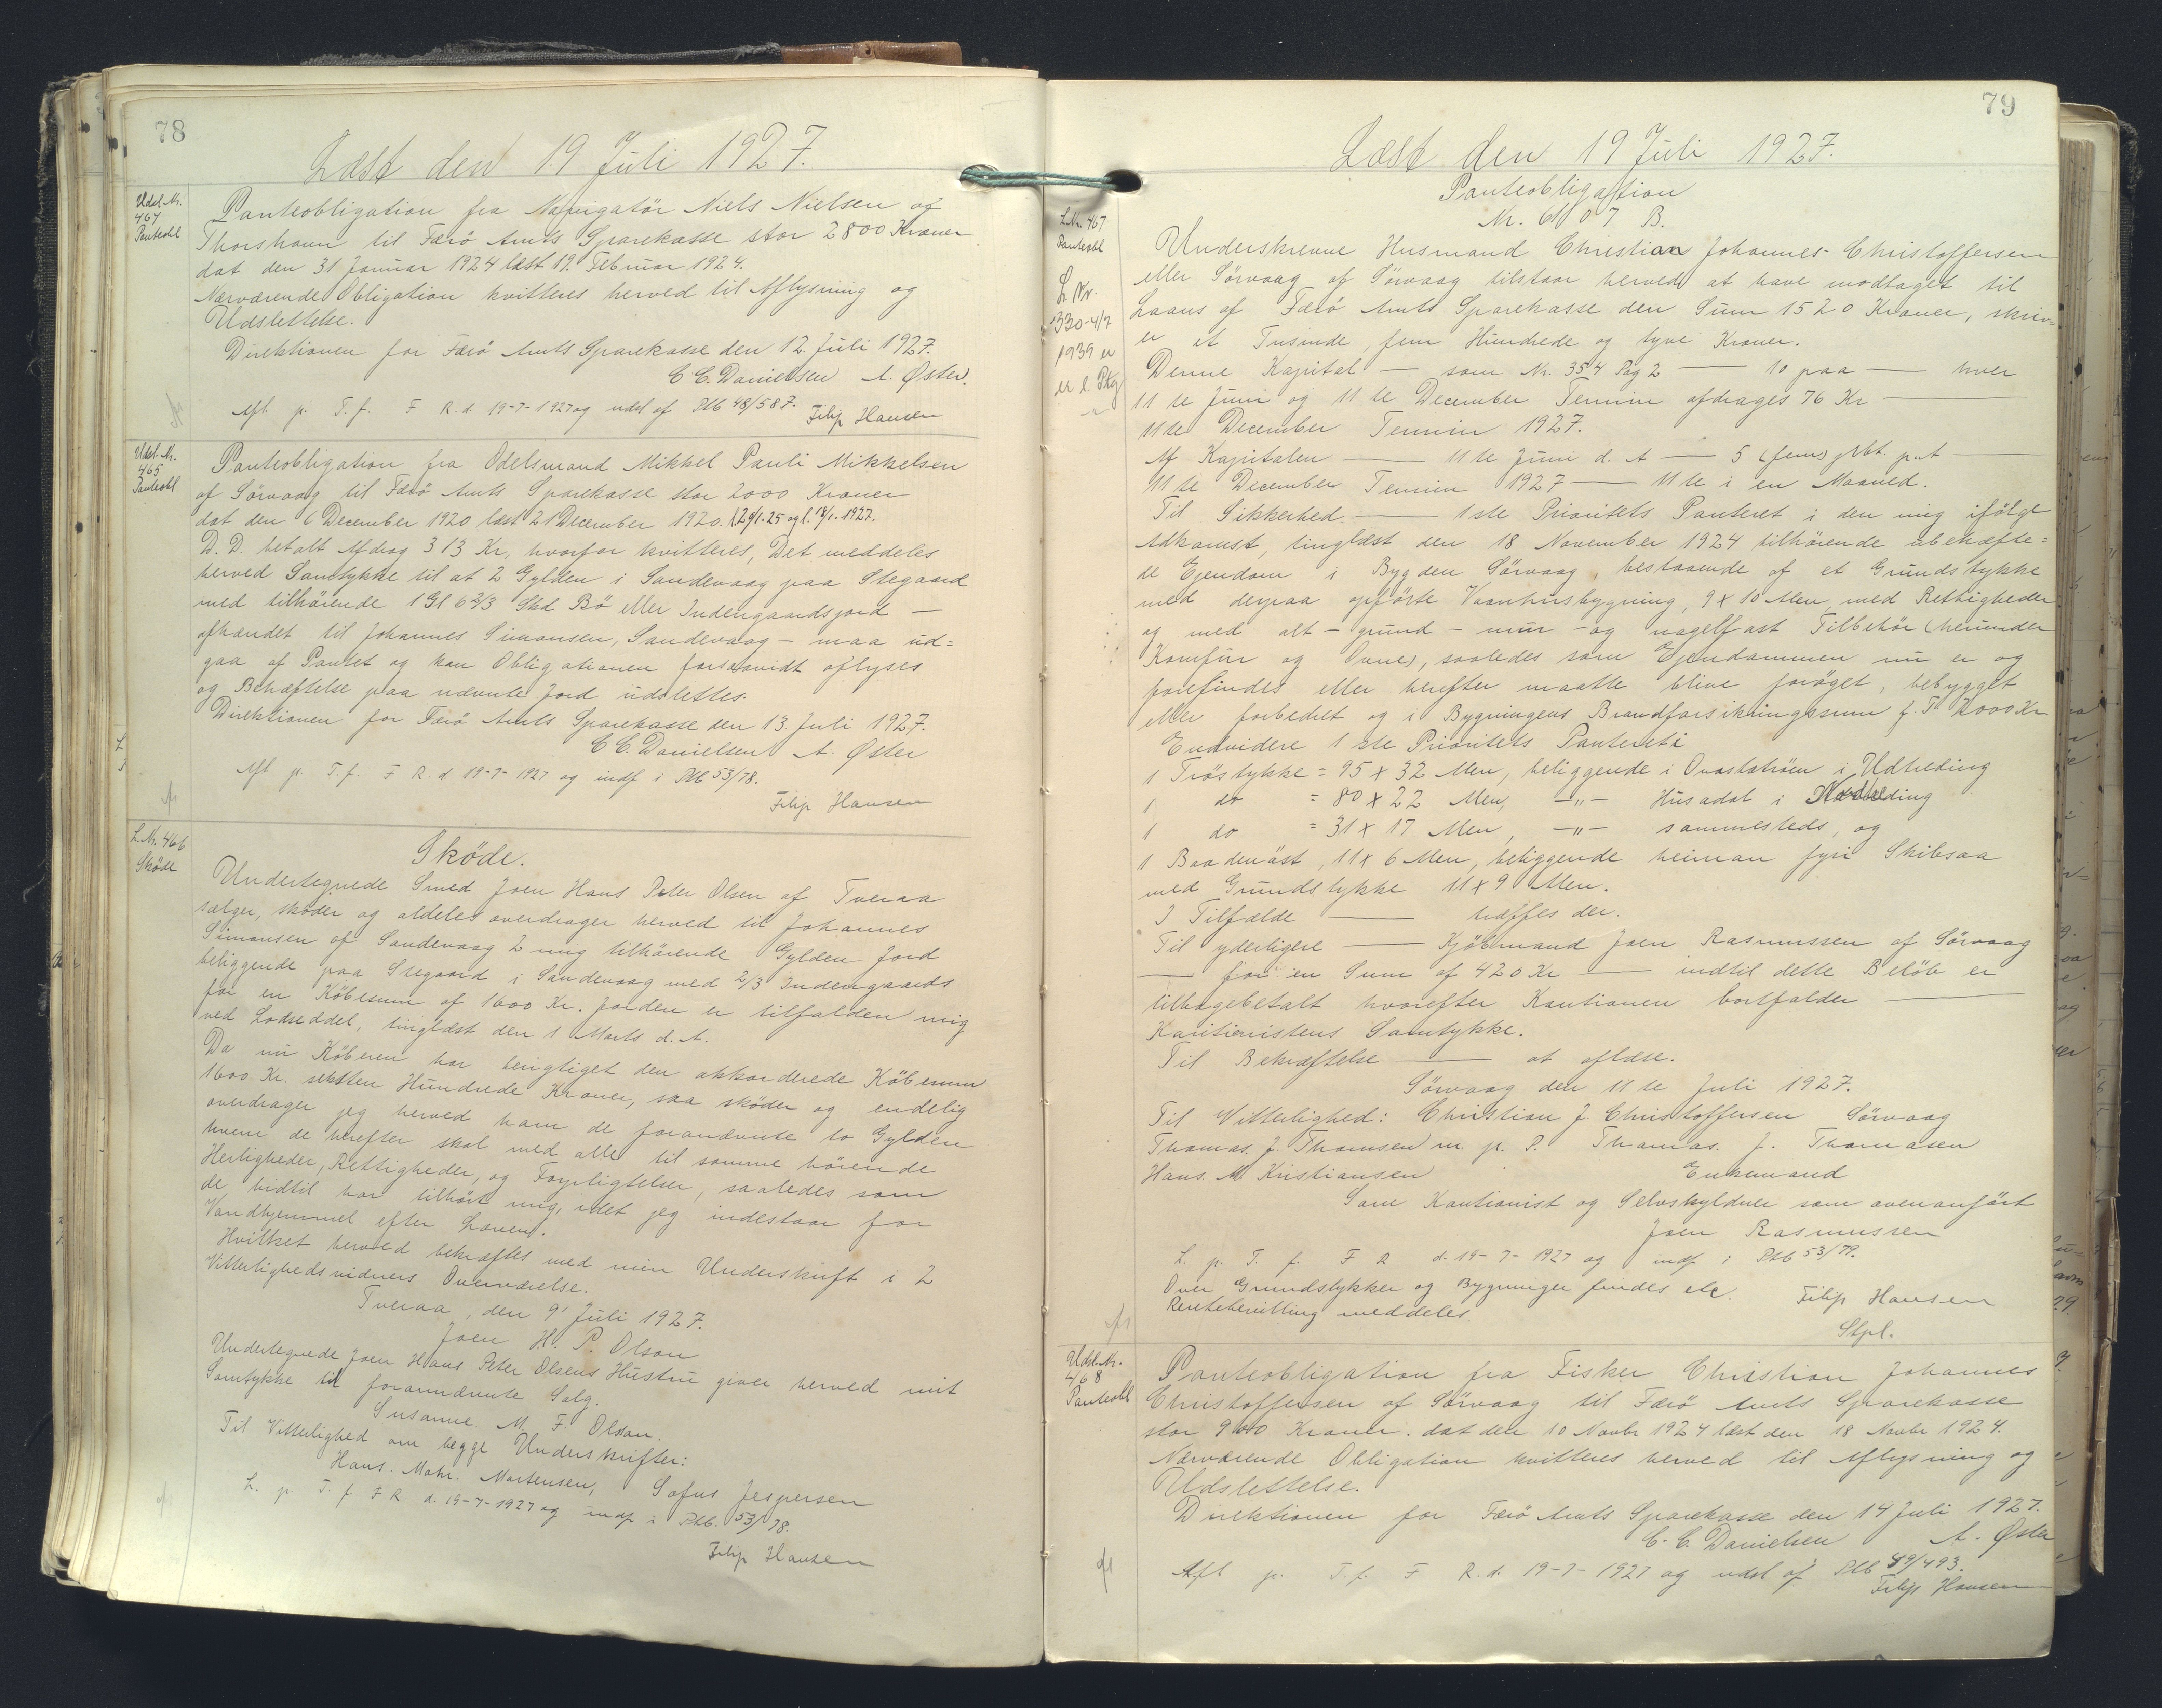 78
Læst den 19 Juli 1927.
Udsl. Nr.
464
Panteobl
Panteobligation fra Navigatör Niels Nielsen af
Thorshavn til Færö Amts Sparekasse stor 2800 Kroner
dat den 31 Januar 1924 læst 19. Februar 1924.
Nærværende Obligation kvitteres herved til Aflysning og
Udslettelse.
Direktionen for Færö Amts Sparekasse den 12. Juli 1927.
C. C. Danielsen A. Øster.
Afl p. T. f. F R. d. 19-7-1927 og udsl af Pkb 48/587.
Filip Hansen
Udsl. Nr.
465
Panteobl
Panteobligation fra Odelsmand Mikkel Pauli Mikkelsen
af Sörvaag til Færö Amts Sparekasse stor 2000 Kroner
dat den 6 December 1920 læst 21 December 1920. 1 29/1-25 og l. 18/1-1927.
D. D. betalt Afdrag 313 Kr, hvorfor kvitteres, Det meddeles
herved Samtykke til at 2 Gylden i Sandevaag paa Stegaard
med tilhörende 1 Gl 6 2/3 Skd Bö eller Indengaardsjord —
afhændet til Johannes Simonsen, Sandevaag - maa ud=
gaa af Pantet og kan Obligationen forsaavidt aflyses
og Behæftelse paa nævnte Jord udslettes.
Direktionen for Færö Amts Sparekasse den 13 Juli 1927.
C C. Danielsen A. Øster
Afl p. T. f. F R. d 19-7-1927 og indf i Pkb 53/78.
Filip Hansen
L. Nr. 466
Sköde
Sköde.
Undertegnede Smed Joen Hans Peter Olsen af Tveraa
sælger, sköder og aldeles overdrager herved til Johannes
Simonsen af Sandevaag 2 mig tilhörende Gylden Jord
beliggende paa Stegaard i Sandevaag med 2/3 Indengaards
for en Købesum af 1600 Kr. Jorden er tilfalden mig
ved Lodseddel, tinglæst den 1 Marts d. A.
Da nu Köberen har berigtiget den akkorderede Köbesum
1600 Kr. seksten Hundrede Kroner, saa sköder og endelig
overdrager jeg herved ham de forannævnte to Gylden
hvem de herefter skal med alle til samme hörende
Herligheder, Rettigheder, og Forpligtelser, saaledes som
de hidtil har tilhört mig, idet jeg indestaar for
Vandhjemmel efter Loven.
Hvilket herved bekræftes med min Underskrift i 2
Vitterlighedsvidners Overværelse.
Tveraa, den 9' Juli 1927.
Joen H. P. Olson
Undertegnede Joen Hans Peter Olsens Hustru giver herved mit
Samtykke til forannævnte Salg.
Susanne M. F. Olson.
Til Vitterlighed om begge Underskrifter:
Hans. Mohr. Mortensen, Sofus Jespersen
L. p. T. f. F R d. 19-7-1927 og indf i Pkb. 53/78.
Filip Hansen
79
Læst den 19 Juli 1927.
L. Nr. 467
Panteobl
L. Nr.
330-4/7
1939 er
Panteobligation
Nr. 6107 B.
Underskrevne Husmand Christian Johannes Christoffersen
eller Sörvaag af Sörvaag tilstaar herved at have modtaget til
Laans af Færö Amts Sparekasse den Sum 1520 Kroner, skriv=
er et Tusinde, fem Hundrede og tyve Kroner.
Denne Kapital — som Nr. 354 Pag 2 — 10 paa — hver
11 te Juni og 11 te December Termin afdrages 76 Kr —
11te December Termin 1927.
Af Kapitalen — 11 te Juni d. A — 5 (fem) pCt. p. A
11 te December Termin 1927 — 11 te i en Maaned.
Til Sikkerhed — 1ste Prioritets Panteret i den mig ifölge
Adkomst, tinglæst den 18 November 1924 tilhörende ubehæfte=
de Ejendom i Bygden Sörvaag, bestaaende af et Grundstykke
med derpaa opförte Vaanhusbygning, 9 x 10 Alen, med Rettigheder
og med alt - grund - mur - og nagelfast Tilbehör (herunder
Komfur og Ovne), saaledes som Ejendommen nu er og
forefindes eller herefter maatte blive foröget, bebygget
eller forbedret og i Bygningens Brandforsikringssum f. T. 2000 Kr
Endvidere 1 ste Prioritets Panteret i
1 Tröstykke = 95 x 32 Alen, beliggende i Udtheding
1 do = 80 x 22 Alen, -"- Husadal i
1 do = 31 x 17 Alen, -"- sammesteds, og
1 Baadenöst, 11 x 6 Alen, beliggende heiman fyri Skibsaa
med Grundstykke 11 x 9 Alen.
I Tilfælde — træffes der.
Til yderligere — Kjöbmand Joen Rasmussen af Sörvaag
— for en Sum af 420 Kr — indtil dette Belöb er
tilbagebetalt hvorefter Kautionen bortfalder —
Kautionistens Samtykke.
Til Bekræftelse — at aflæse.
Sörvaag den 11 te Juli 1927.
Til Vitterlighed: Christian J. Christoffersen Sörvaag
Thomas. J. Thomsen m. p. P. Thomas. J. Thomasen
Hans. M Kristiansen Enkemand
Som Kautionist og Selvskyldner som ovenanfört
Joen Rasmussen
L. p. T. f. F R d. 19-7-1927 og indf i Pkb 53/79.
Over Grundstykker og Bygninger findes etc. Filip Hansen
Rentebevilling meddeles.
Stpl.
Udsl. Nr.
468
Panteobl
Panteobligation fra Fisker Christian Johannes
Christoffersen af Sörvaag til Færö Amts Sparekasse
stor 900 Kroner. dat den 10 Novbr 1924 læst den 18 Novbr 1924.
Nærværende Obligation kvitteres herved til Aflysning og
Udslettelse.
Direktionen for Færö Amts Sparekasse den 14 Juli 1927.
C. C. Danielsen A. Øster
Afl p. T. f. F R. d. 19-7-1927 og udsl af Pkb 49/493.
Filip Hansen